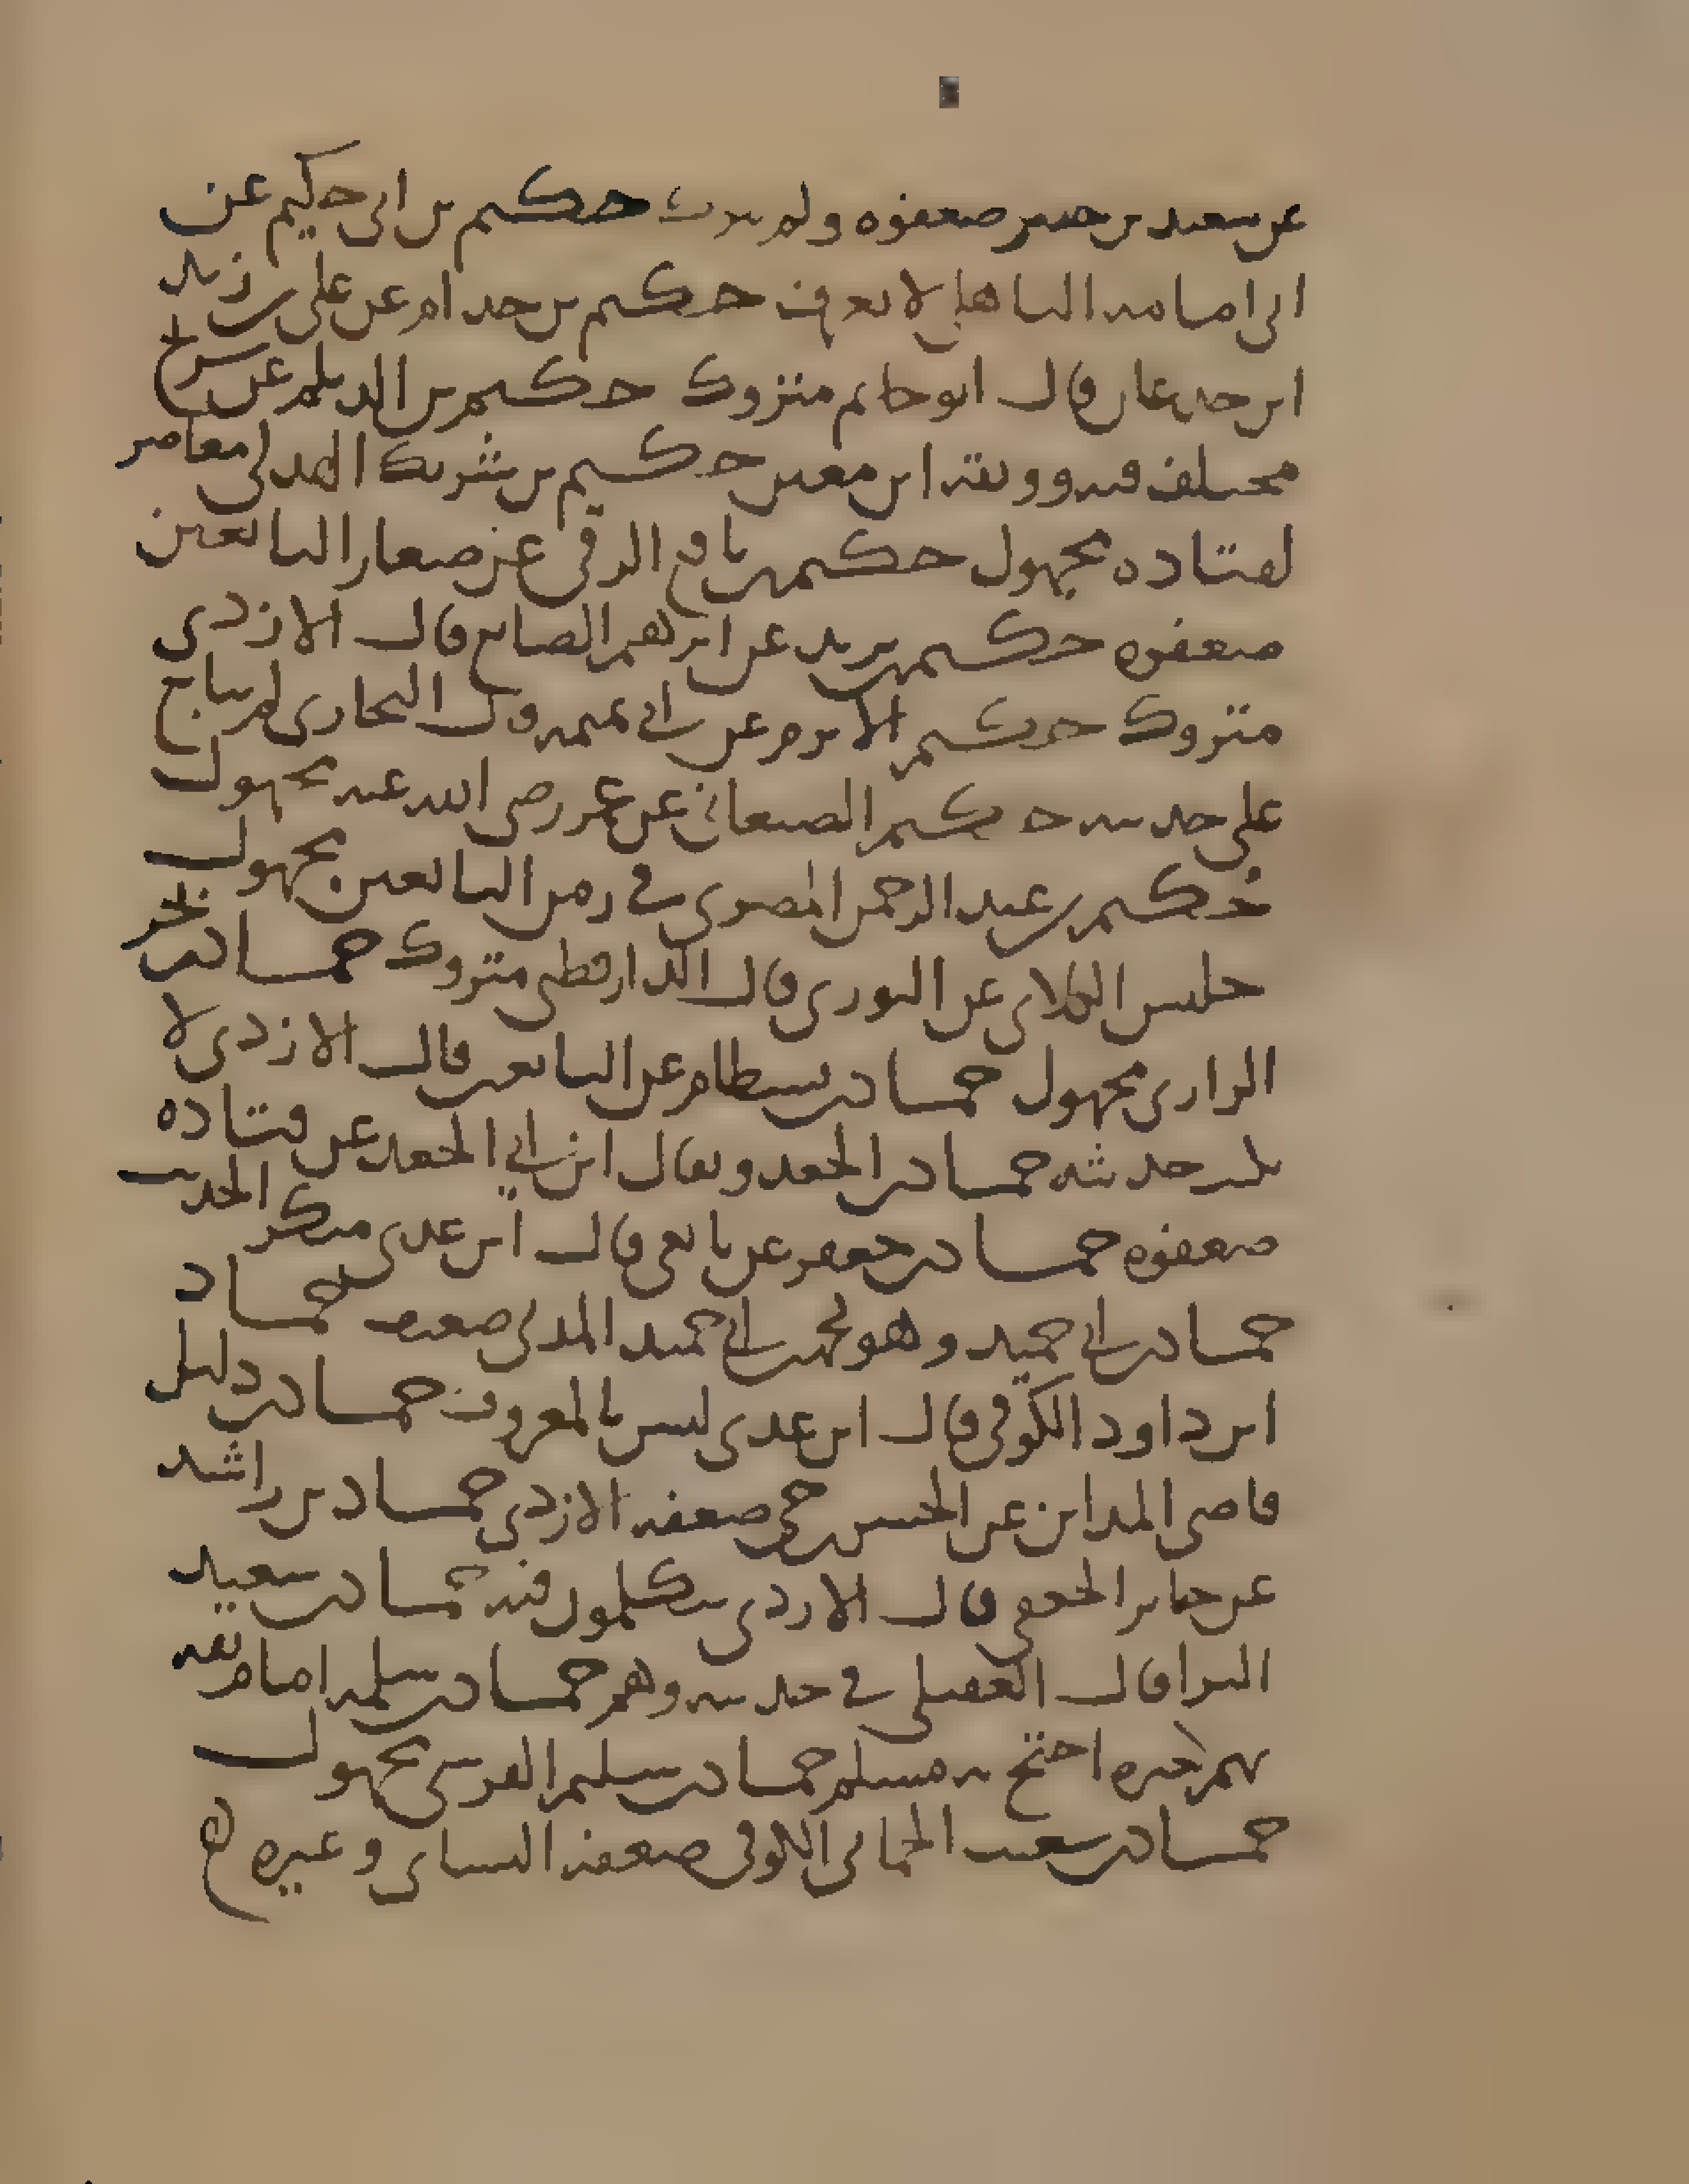 عن سعيد بن جبير ضعفوه ولم يترك حكيم بن ابى حكيم عن
ابى امامه الباهلى لا يعرف حكيم بن خذام عن على بن زيد
ابن جدعان قال ابو حاتم متروك حكيم بن الديلم عن شريح
مختلف فيه ووثقه ابن معين حكيم بن شريك الهذلى معاصر
لقتاده مجهول حكيم بن نافع الرقى عن صغار التابعين
ضعفوه حكيم بن يزيد عن ابرهيم الصايغ قال الازدى
متروك حكيم الاثرم عن ابى تميمه قال البخارى لم يتابع
على حديثه حكيم الصنعانى عن عمر رضى الله عنه مجهول
حكيم بن عبد الرحمن المصرى فى زمن التابعين مجهول
حلبس الكلابى عن الثورى قال الدارقطنى متروك حماد بن بحر
الرازى مجهول حماد بن بسطام عن التابعين قال الازدى لا
يكتب حديثه حماد بن الجعد ويقال ابن ابى الجعد عن قتاده
ضعفوه حماد بن جعفر عن تابعى قال ابن عدى منكر الحديث
حماد بن ابى حميد وهو محمد بن ابى حميد المدنى ضعيف حماد
ابن داود الكوفى قال ابن عدى ليس بالمعروف حماد بن دليل
قاضى المداين عن الحسن بن حى ضعفه الازدى حماد بن راشد
عن جابر الجعفى قال الازدى يتكلمون فيه حماد بن سعيد
البرا قال العقيلى فى حديثه وهم حماد بن سلمه امام ثقه
يهم كغيره احتج به مسلم حماد بن سليم القرشى مجهول
حماد بن شعيب الحمانى الكوفى ضعفه النسائى وغيره